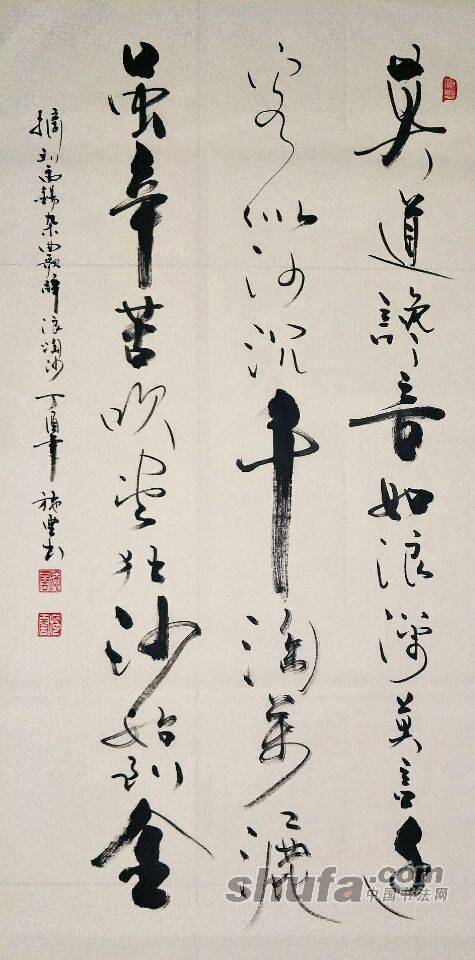 莫道讒音如浪深莫言迁
客似沙沉千淘萬漉
虽辛苦吹尽狂沙始到金
摘刘禹锡杂曲歌辞浪淘沙 丁酉年 书
shufa.com
中国书法网